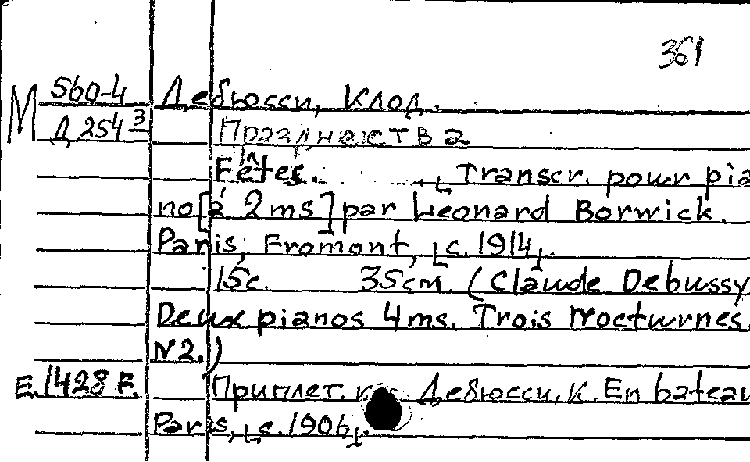 361
M 560-4 Дебюсси, Клод.
Д 254 3 Празднества
Fêtes. Transcr. pour pia
no [à 2 ms] par Leonard Borwick.
Paris, Fromont, [c. 1914].
15 с. 35 см. (Claude Debussy
Deux pianos 4 ms. Trois Nocturnes.
N 2.)
E. 1428 F. Приплет. к: Дебюсси, К. En bateau
Paris, [c. 1906].